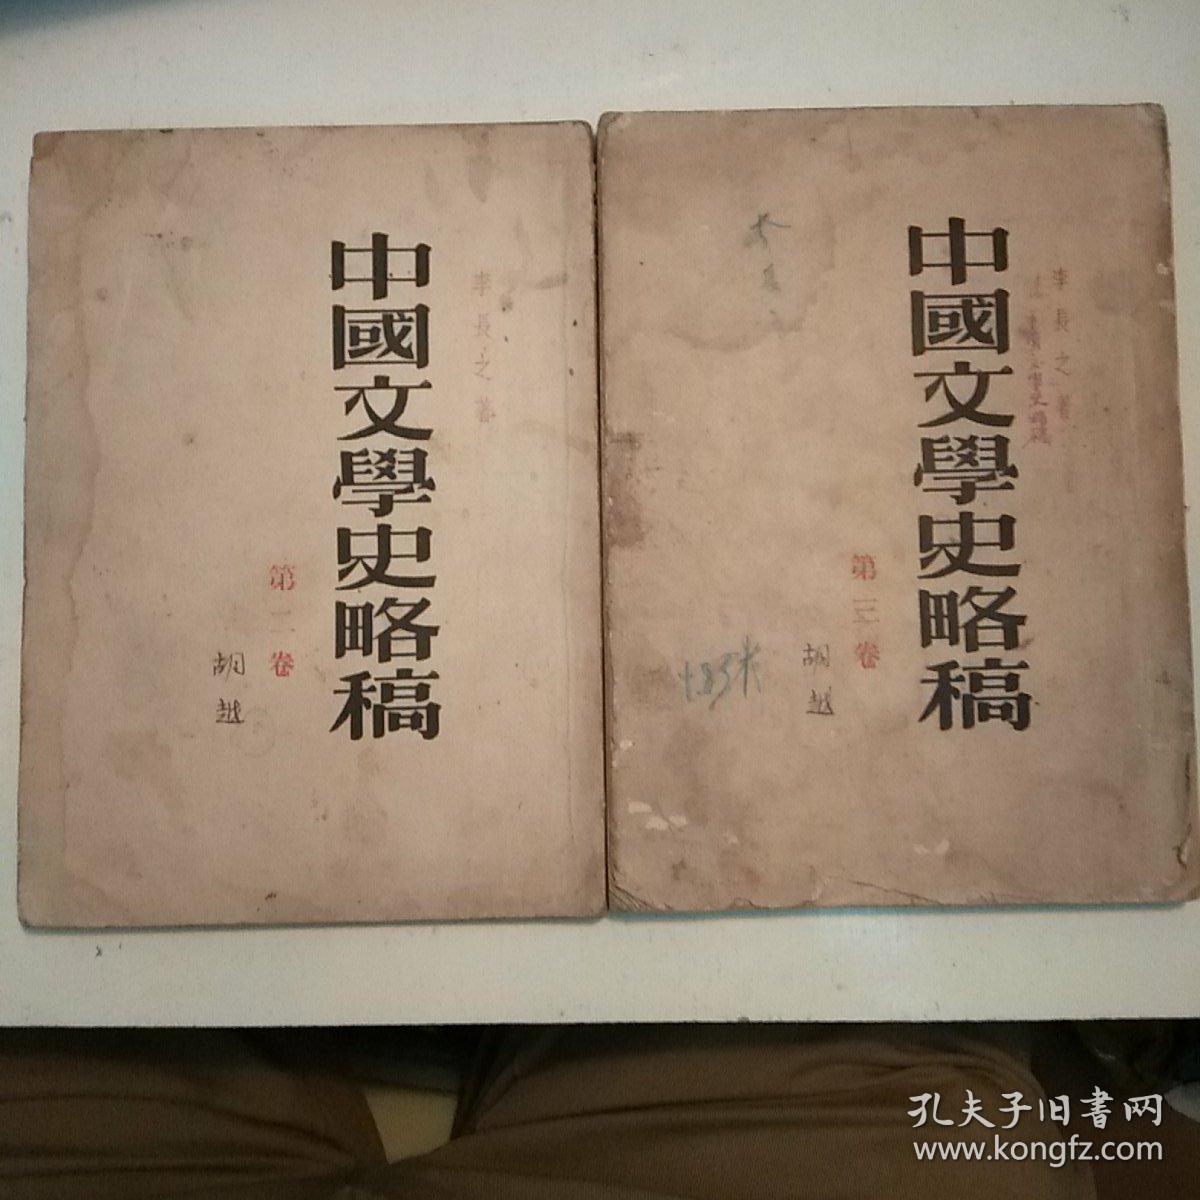 李長之著
中國文學史略稿
第二卷
胡越
李長之著
中國文學史略稿
第三卷
胡越
孔夫子旧書网
www.kongfz.com